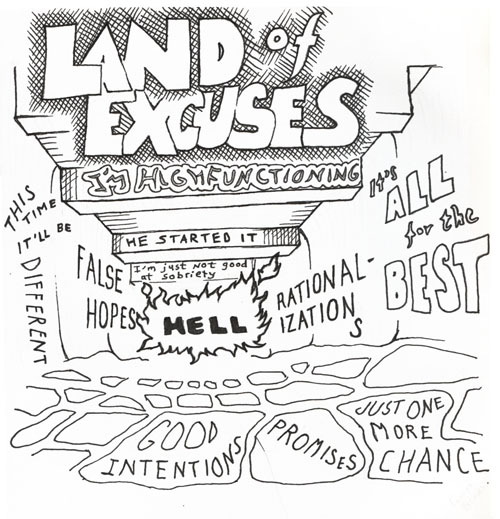 LAND of
EXCUSES
I'M HIGHFUNCTIONING
HE STARTED IT
I'm just not good
at sobriety
HELL
THIS
TIME
IT'LL BE
DIFFERENT
FALSE
HOPES
RATIONAL-
IZATION
S
It's
ALL
for the
BEST
GOOD
INTENTIONS
PROMISES
JUST ONE
MORE
CHANCE